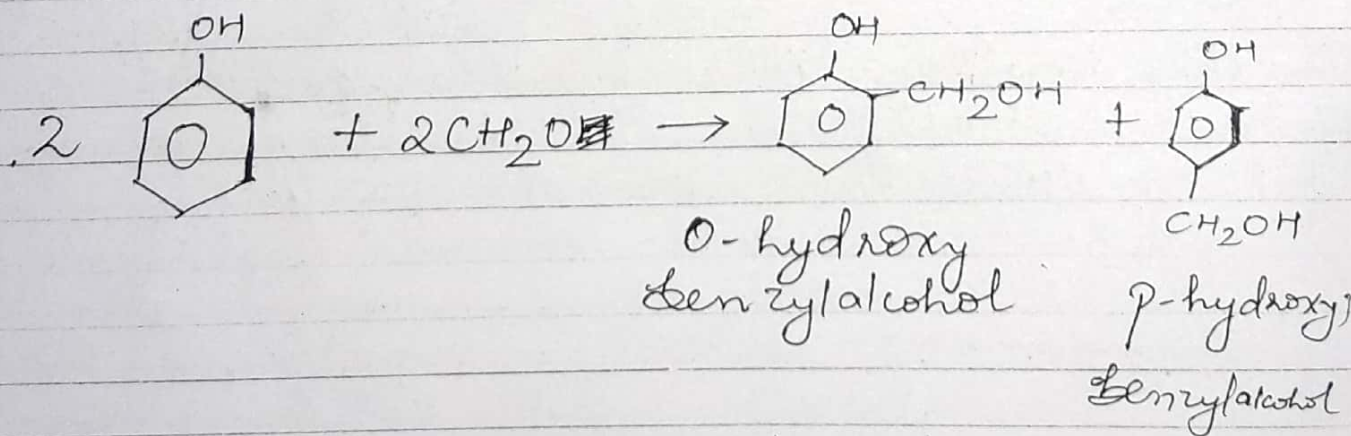 OH OH OH
.2 + 2CH2O → CH2OH +
CH2OH
O-hydroxy
benzylalcohol p-hydroxy;
benzylalcohol